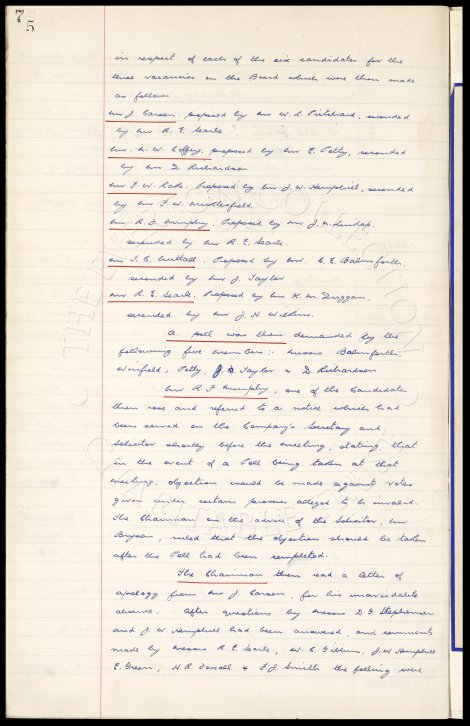 75
in respect of each of the six candidates for the
three vacancies on the Board which were then made
as follows
Mr J. Carson, proposed by Mr W. L. Pritchard, seconded
by Mr R. E. Searle
Mr. A. W. Coffey, proposed by Mr E. Petty, seconded
by Mr D. Richardson
Mr F. W. Proposed by Mr J. W. Hemphill, seconded
by Mr F. W.
Mr. R. F. Murphy, Proposed by Mr J. M. Dunlop,
seconded by Mr R. E. Searle.
Mr T. C. Nuttall. Proposed by Mr. C. E. Balmforth
seconded by Mr J. Taylor
Mr R. E. Searle. Proposed by Mr K. M. Duggan,
seconded by Mr J. H. Wilkins.
A poll was then demanded by the
following five members:- Messrs Balmforth,
Winfield, Petty, J. Taylor & D. Richardson
Mr R. F. Murphy, one of the Candidates
then rose and referred to a notice which had
been served on the Company's Secretary and
Solicitor shortly before the meeting, stating, that
in the event of a Poll being taken at that
meeting, objection would be made against votes
given under certain proxies alleged to be invalid.
The Chairman, on the advice of the Solicitor, Mr
Bryson, ruled that the objection should be taken
after the Poll had been completed.
The Chairman then read a letter of
apology from Mr J. Carson, for his unavoidable
absence. After questions by Messrs D. G. Stephenson
and J. W. Hemphill had been answered, and comments
made by Messrs R. E. Searle, W. C. Gibbins, J. W. Hemphill
E. Green, H. R. & F. J. Smith the following were